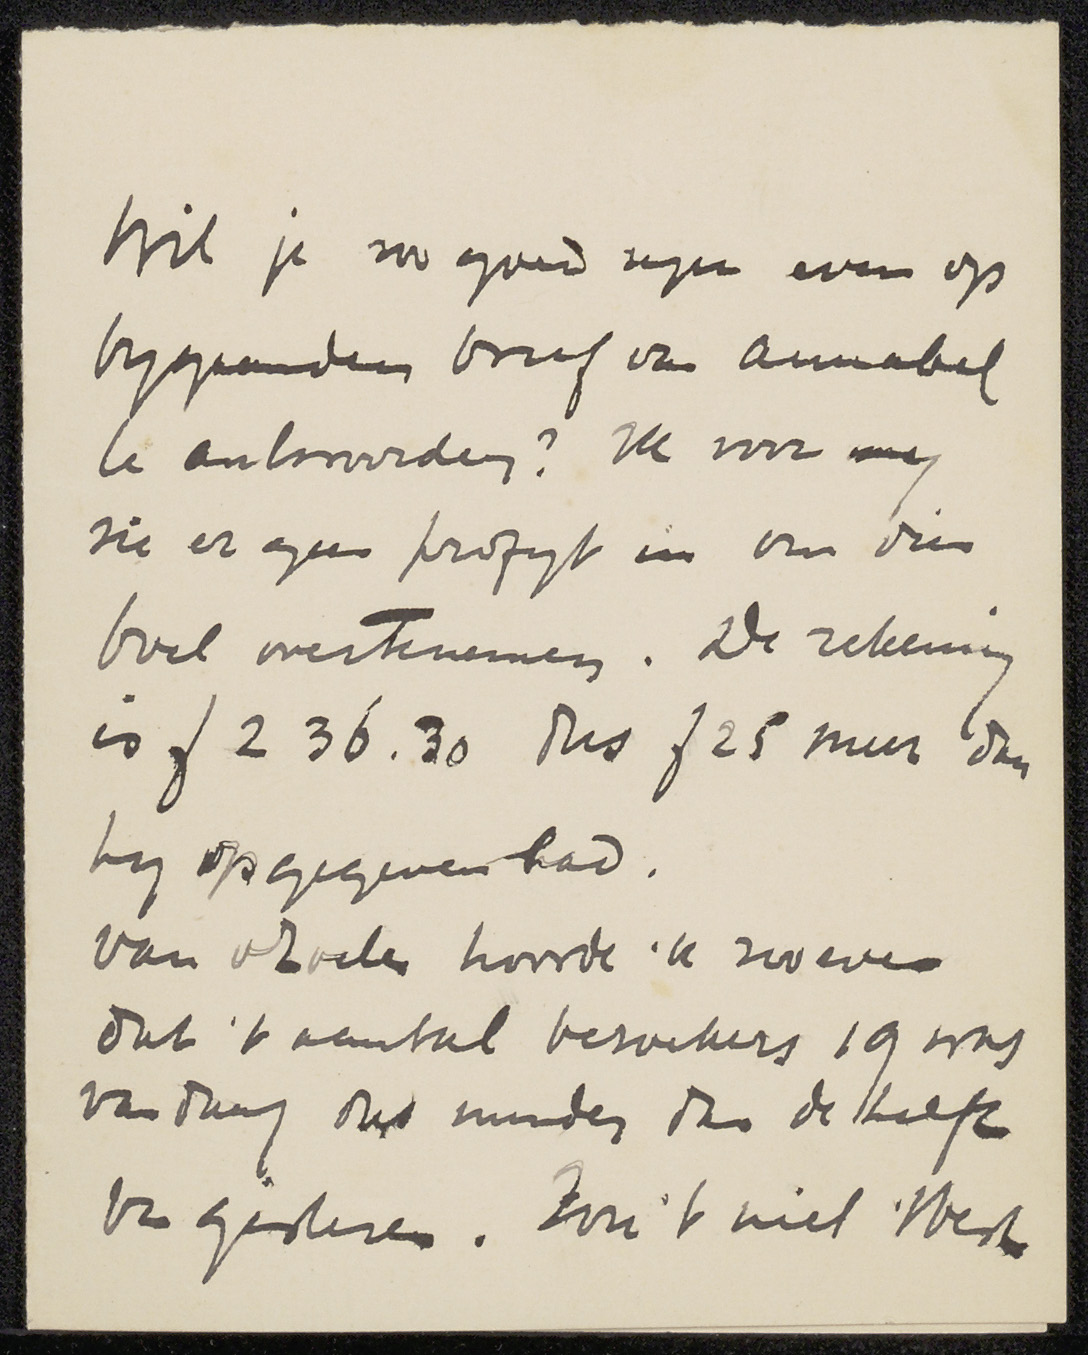 Wil je zoo goed zijn even op
bijgaanden brief van Annabel
te antwoorden? Ik voor mij
zie er geen profijt in om dien
boel overtenemen. De rekening
is f 236.30 dus f 25 meer dan
hij opgegeven had.
van hoorde ik zooeven
dat 't aantal bezoekers 19 was
vandaag dus minder dan de helft
van gisteren. Zou 't niet 't best